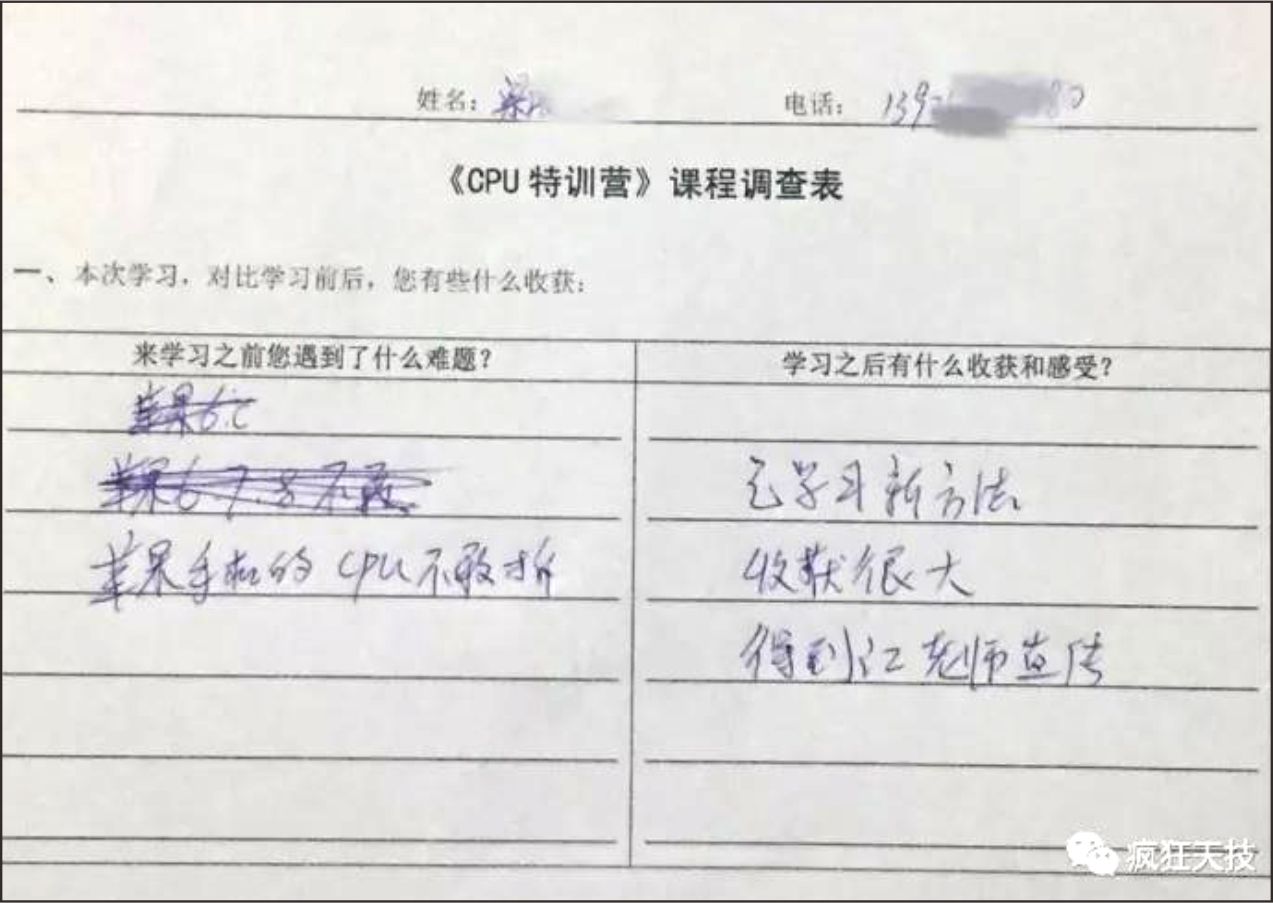 姓名：梁 电话：139 80
《CPU特训营》课程调查表
一、本次学习，对比学习前后，您有些什么收获：
来学习之前您遇到了什么难题？
苹果6.C
苹果6 7.8不敢
苹果手机的CPU不敢拆
学习之后有什么收获和感受？
已学习新方法
收获很大
得到江老师真传
疯狂天技